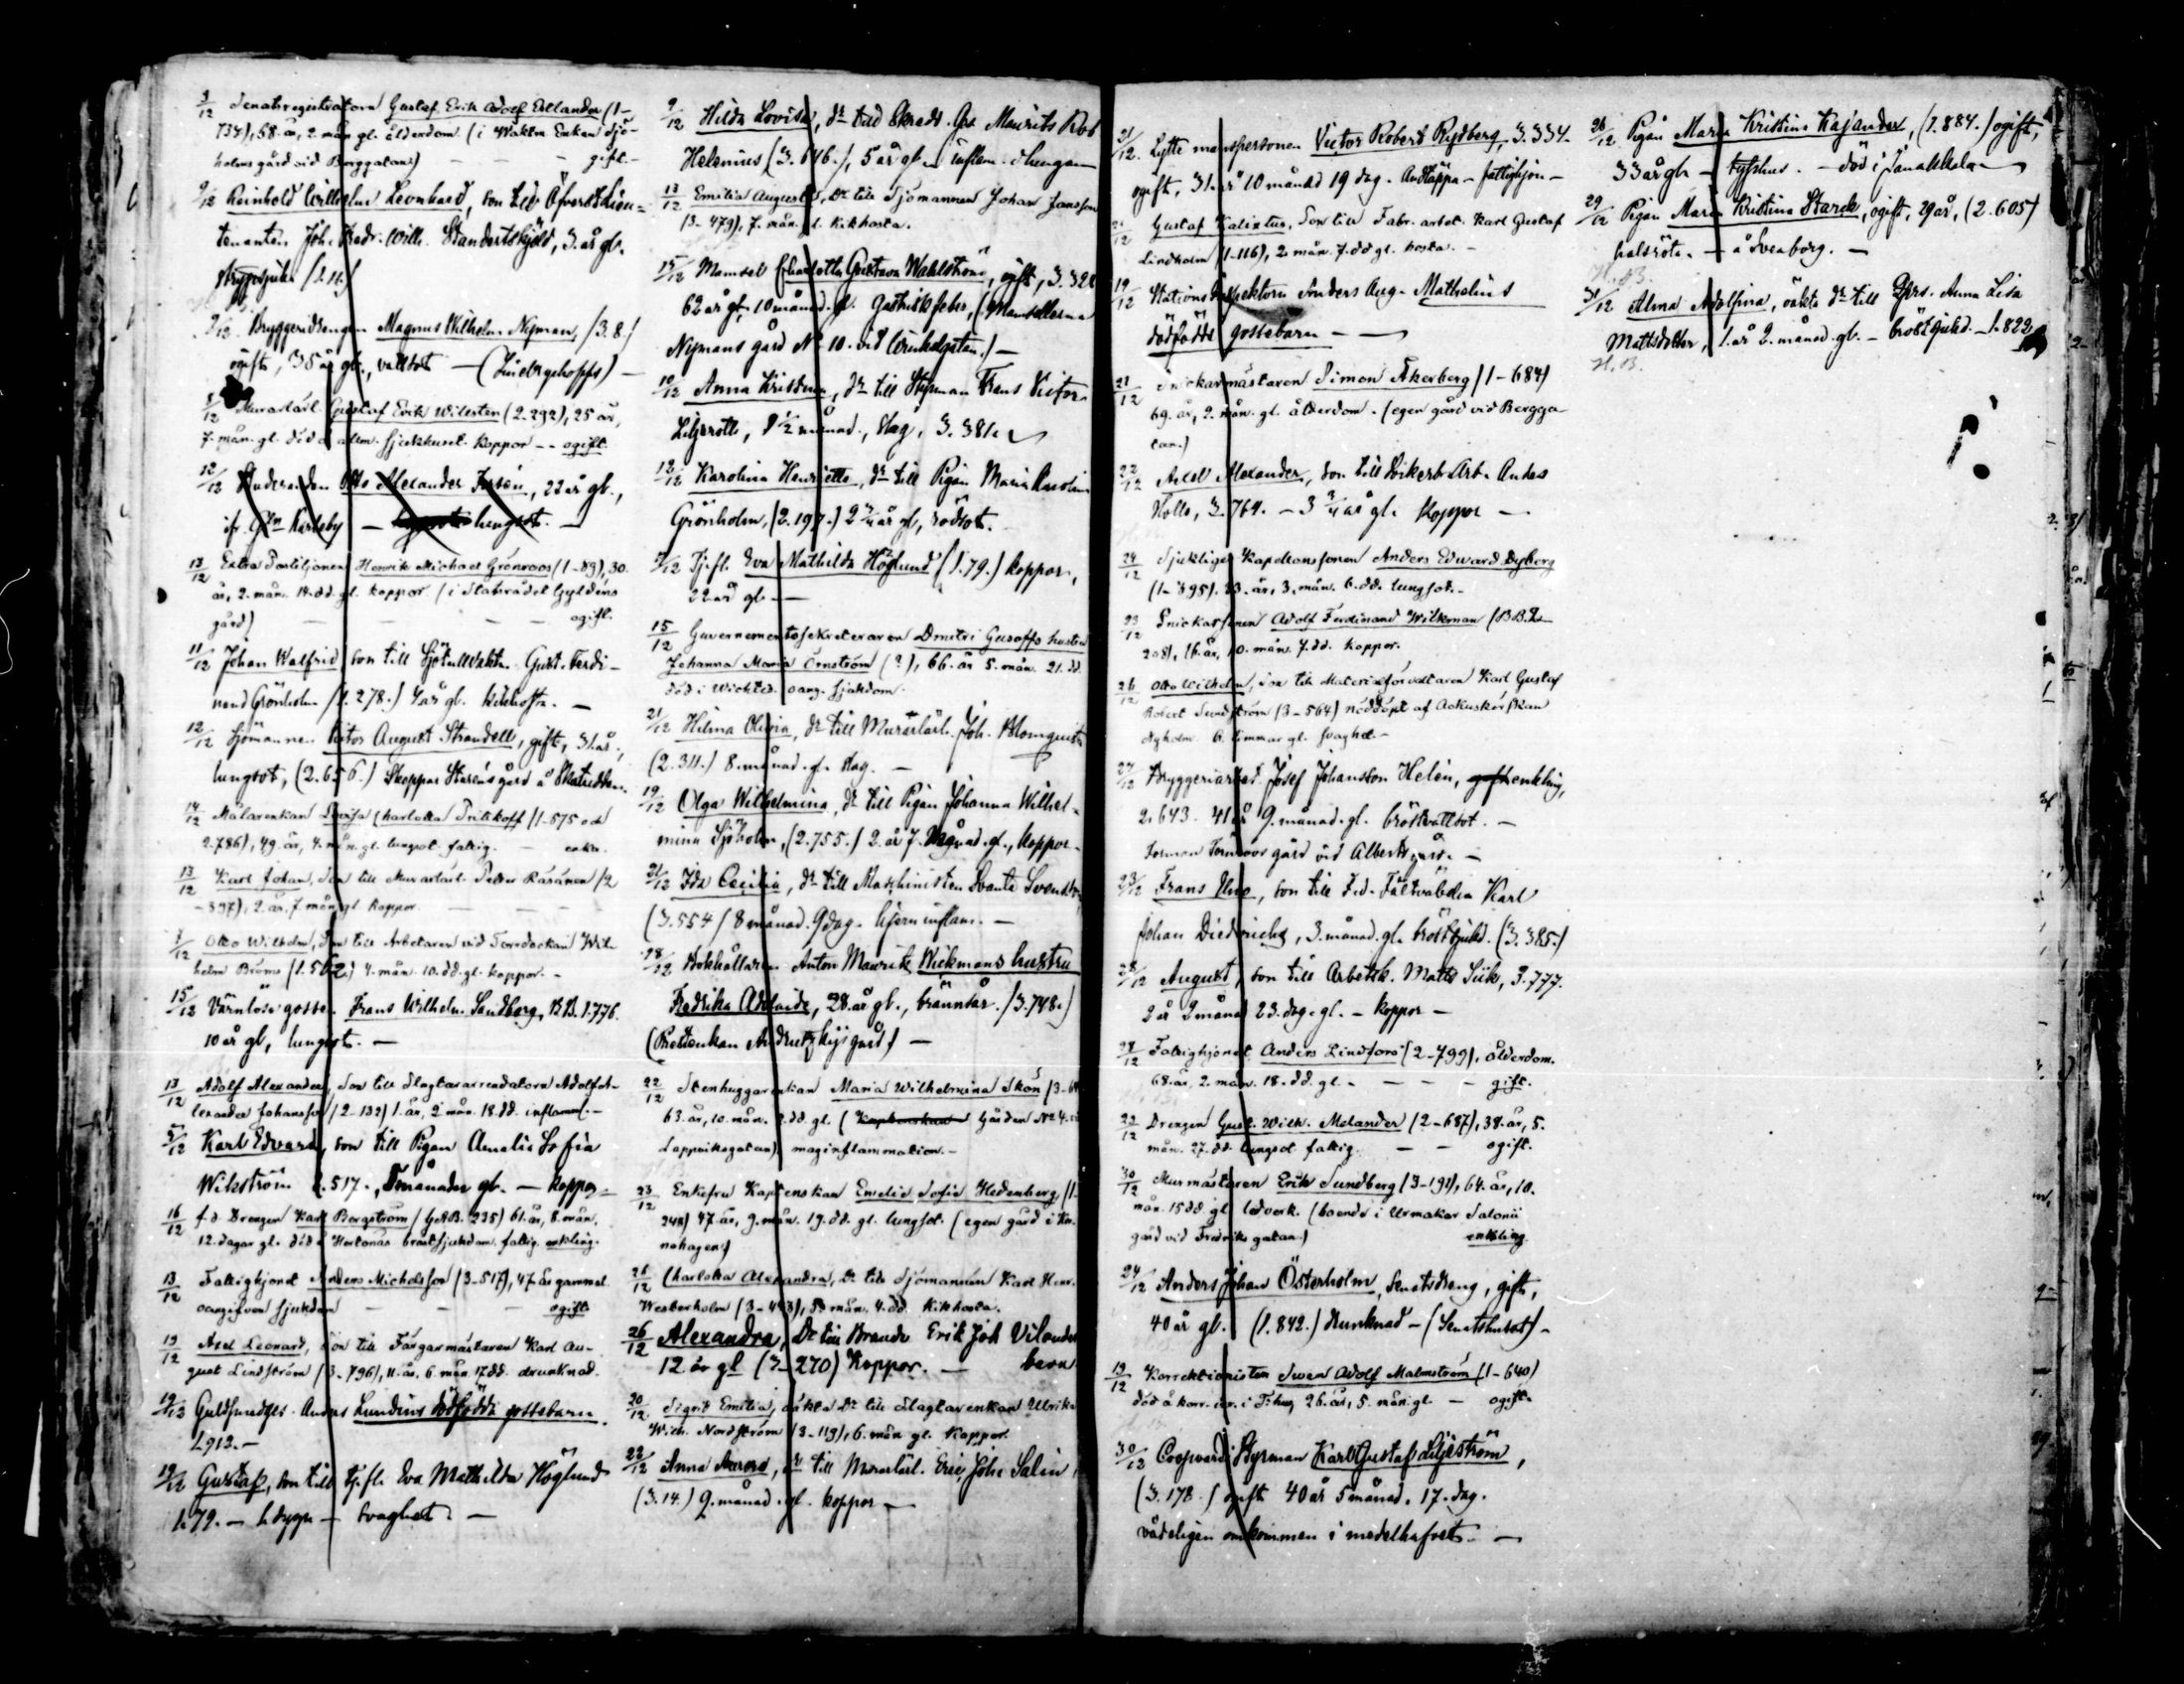 9/12 Senatsregistratorn Gustaf Erik Adolf Estlander (1-
737), 68. år, 2. mån gl. ålderdom. (i Enkan Sjö-
holms gård vid Berggatan) — — gift.
9/12 Reinhold Wilhelm Leonhard, son till Öfverstelieu-
tenanten Joh. Fredr. Wilh. Standertskjöld, 3. år gl.
strypsjuka (1. 11.)
9/12 Bryggeridrengen Magnus Wilhelm Nyman, (3. 8.)
ogift, 38 år gl., vattsot —
8/12 Murarlärl. Gustaf Erik Wilesten (2. 292), 25 år,
7. mån. gl. död å allm. sjukhuset. Koppor — ogift
12/12 Studeranden Otto Alexander 22 år gl.,
Karleby — lungsot. —
13/12 Extra Postiljonen Henrik Michael Grönroos (1-89), 30.
år, 2. mån. 14. dd. gl. koppor (i Statsrådet Gyldéns
gård) — — — ogift.
11/12 Johan Walfrid son till Sjötullvakten Gust. Ferdi-
nand Grönholm (1. 278.) 4 år gl. kikhosta. —
12/12 Sjömannen Victor August Strandell, gift, 31. år,
lungsot, (2. 656.) Skeppar gård å Skatudden.
14/12 Målarenkan Lovisa Charlotta Pritikoff (1-575 och
2.786), 49. år, 4. mån. gl. lungsot fattig. — enka.
13/12 Karl Johan, Son till Murarlärl. Petter Räsänen (2
-397), 2. år. 7. mån gl. Koppor.
8/12 Otto Wilhelm, Son till Arbetaren vid Torrdockan Wil-
helm Broms (1. 562) 4. mån. 10. dd. gl. koppor. -
15/12 Värnlöse gossen Frans Wilhelm Sandberg, B.B. 1.776.
10 år gl, lungsot. —
13/12 Adolf Alexander, Son till Slagtararrendatorn Adolf A-
lexander Johansson (2-132) 1. år, 2 mån. 18. dd. inflamm. -
5/12 Karl Edvard, son till Pigan Amalia Sofia
Wikström 1. 517., månader gl. — koppor -
16/12 f.d. Drengen Karl Bergström (G.A.B. 235) 61. år, 8. mån.
12. dagar gl. död i Hertonäs bröstsjukdom. fattig. enkling.
13/12 Fattighjonet Anders Michelsson (3-517), 47 år gammal
oangifven sjukdom — — — ogift
19/12 Axel Leonard, Son till Färgarmästaren Karl Au-
gust Lindström (3-796), 11. år, 6. mån. 17 dd. drunknad.
19/12 Guldsmedsges. Anders Lundins dödfödda gossebarn.
1.912. —
19/12 Gustaf, son till tj.fl. Eva Mathilda Höglund
1. 79. — 1. dygn — svaghet. —
9/12 Hilda Lovisa, dr till Skradd. Ges. Maurits Rob
Helenius (3. 646.), 5 år gl. inflam. i lungan
13/12 Emilia Augusta, Dr till Sjömannen Johan Jansson
(3-479), 7. mån. gl. Kikhosta.
15/12 Mamsel Charlotta Gustava Wahlström, ogift, 3. 328
62 år gl. 10 månad. gl. Gastrisk feber, (Mamsellerna
Nymans gård No 10. vid Wladimirsgatan.) —
10/12 Anna Kristina, dr till Styrman Frans Victor
Liljeroth, 8 1/2 månad., slag. 3. 381.
12/12 Karolina Henrietta, dr till Pigan Maria Karolina
Grönholm, (2. 197.) 2 3/4 år gl, rödsot.
5/12 Tj.fl. Eva Mathilda Höglund (1. 79.) koppor,
22 år gl —
15/12 Guvernementssekreteraren Dmitri Gusoffs hustru
Johanna Maria Örnström (?), 66. år 5. mån. 21. dd.
död i Wichtis. oang. sjukdom.
21/12 Hilma Olivia, dr till Murarlärl. Joh. Blomquist
(2. 311.) 8. månad. gl. slag. —
19/12 Olga Wilhelmina, dr till Pigan Johanna Wilhel-
mina Sjöholm, (2. 755.) 2. år 7. Månad. gl., koppor.
21/12 Ida Cecilia, dr till Maschinisten Svante Svenström
(3. 554) 8 månad. 9 dag. hjerninflam. —
18/12 Bokhållaren Anton Maurits Wickmans hustru
Fredrika Adelaide, 28. år gl., brännsår. (3. 748.)
gård) —
22/12 Stenhuggarenkan Maria Wilhelmina Skön (3-
63. år, 10. mån. 2. dd. gl. (Gården No 4. vid
Lappviksgatan) maginflammation. -
23/12 Enkefru Kaptenskan Emelie Sofie Hedenberg (1-
248) 47. år, 9. mån. 19. dd. gl. lungsot. (egen gård i Kro-
nohagen.)
26/12 Charlotta Alexandra, Dr till Sjömannen Karl Henr.
Westerholm (3-443), 10 mån. 4. dd. Kikhosta.
26/12 Alexandra, Dr till Brandv Erik Joh Vilander
12 år gl (3-270) Koppor. — barn
20/12 Sigrid Emilia, oäkta Dr till Slagtarenkan Ulrika
Wilh. Nordström (3-119), 6. mån gl. Koppor.
22/12 Anna Aurora, dr till Murarlärl. Eric Joh. Salin
(3. 14.) 9. månad. gl. koppor —
21/12. Lytte manspersonen Victor Robert Rydberg, 3. 334.
ogift, 31. år 10 månad 19 dag. Andtäppa - fattighjon -
21/12 Gustaf Kalixtus, Son till Fabr. arbet. Karl Gustaf
Lindholm (1-116), 2. mån. 7. dd gl. hosta. -
19/12 Stations Inspektorn Anders Aug. Mathelins
dödfödde gossebarn —
21/12 Snickarmästaren Simon Åkerberg (1-684)
69. år, 2. mån. gl. ålderdom. (egen gård vid Bergga-
tan.)
22/12 Axel Alexander, son till Sockerb. Arb. Anders
Kollo, 3. 764. — 3 3/4 år gl. Koppor —
24/12 Sjuklige Kaptensonen Anders Edward Dyberg
(1-895). 23. år, 3. mån. 6. dd. lungsot. -
23/12 Snickarsonen Adolf Ferdinand Wilkman (B.B. 2-
208), 16. år, 10. mån. 7. dd. koppor.
26/12 Otto Wilhelm, Son till Materialförvaltaren Karl Gustaf
Robert Sundström (3-564) nöddöpt af Ackuskörskan
Nyholm. 6. timmar gl. svaghet. -
27/12 Bryggeriarbet. Josef Johansson Helén, enkling,
2. 643. 41 år 9. månad. gl. bröstvattsot. —
Forman gård vid Albertsgat. —
23/12 Frans Uno, son till F.d. Fältväbeln Karl
Johan Diedrichs, 3. månad. gl. bröstsjukd. (3. 385.)
28/12 August, son till Arbetsk. Matts Siik, 3.777.
2 år 2 månad 23. dag. gl. — koppor —
28/12 Fattighjonet Anders Lindfors (2-799), ålderdom.
68. år, 2. mån. 18. dd. gl. - — — gift.
22/12 Drengen Gust. Wilh. Melander (2-687), 38. år, 5.
mån. 27. dd. lungsot fattig. — — ogift.
30/12 Murmästaren Erik Sundberg (3-191), 64. år, 10.
mån. 15 dd gl. ledverk. (boende i Urmakar Salonii
gård vid Fredriks gatan.) enkling.
24/12 Anders Johan Österholm, Senatsdreng, gift,
40 år gl. (1. 842.) drunknad — (Senatshuset) -
19/12 Korrektionisten Sven Adolf Malmström (1-640)
död å korr. inr. i T:hus, 26. år, 5. mån. gl. — ogift.
30/12 Coopvardi Styrman Karl Gustaf Liljeström,
(3. 178.) ogift 40 år 5 månad. 17. dag.
vådeligen omkommen i medelhafvet. —
26/12 Pigan Maria Kristina Kajander, (1. 884.) ogift,
33 år gl. — tyfshus. — död i Janakkala —
29/12 Pigan Maria Kristina Starck, ogift, 29 år, (2. 605)
halsröta. — å Sveaborg. —
H. B.
31/12 Alma Adolfina, oäkta dr till Pigs. Anna Lisa
Mattsdotter, 1. år 2. månad. gl. — bröstsjukd. — 1. 822
H. B.